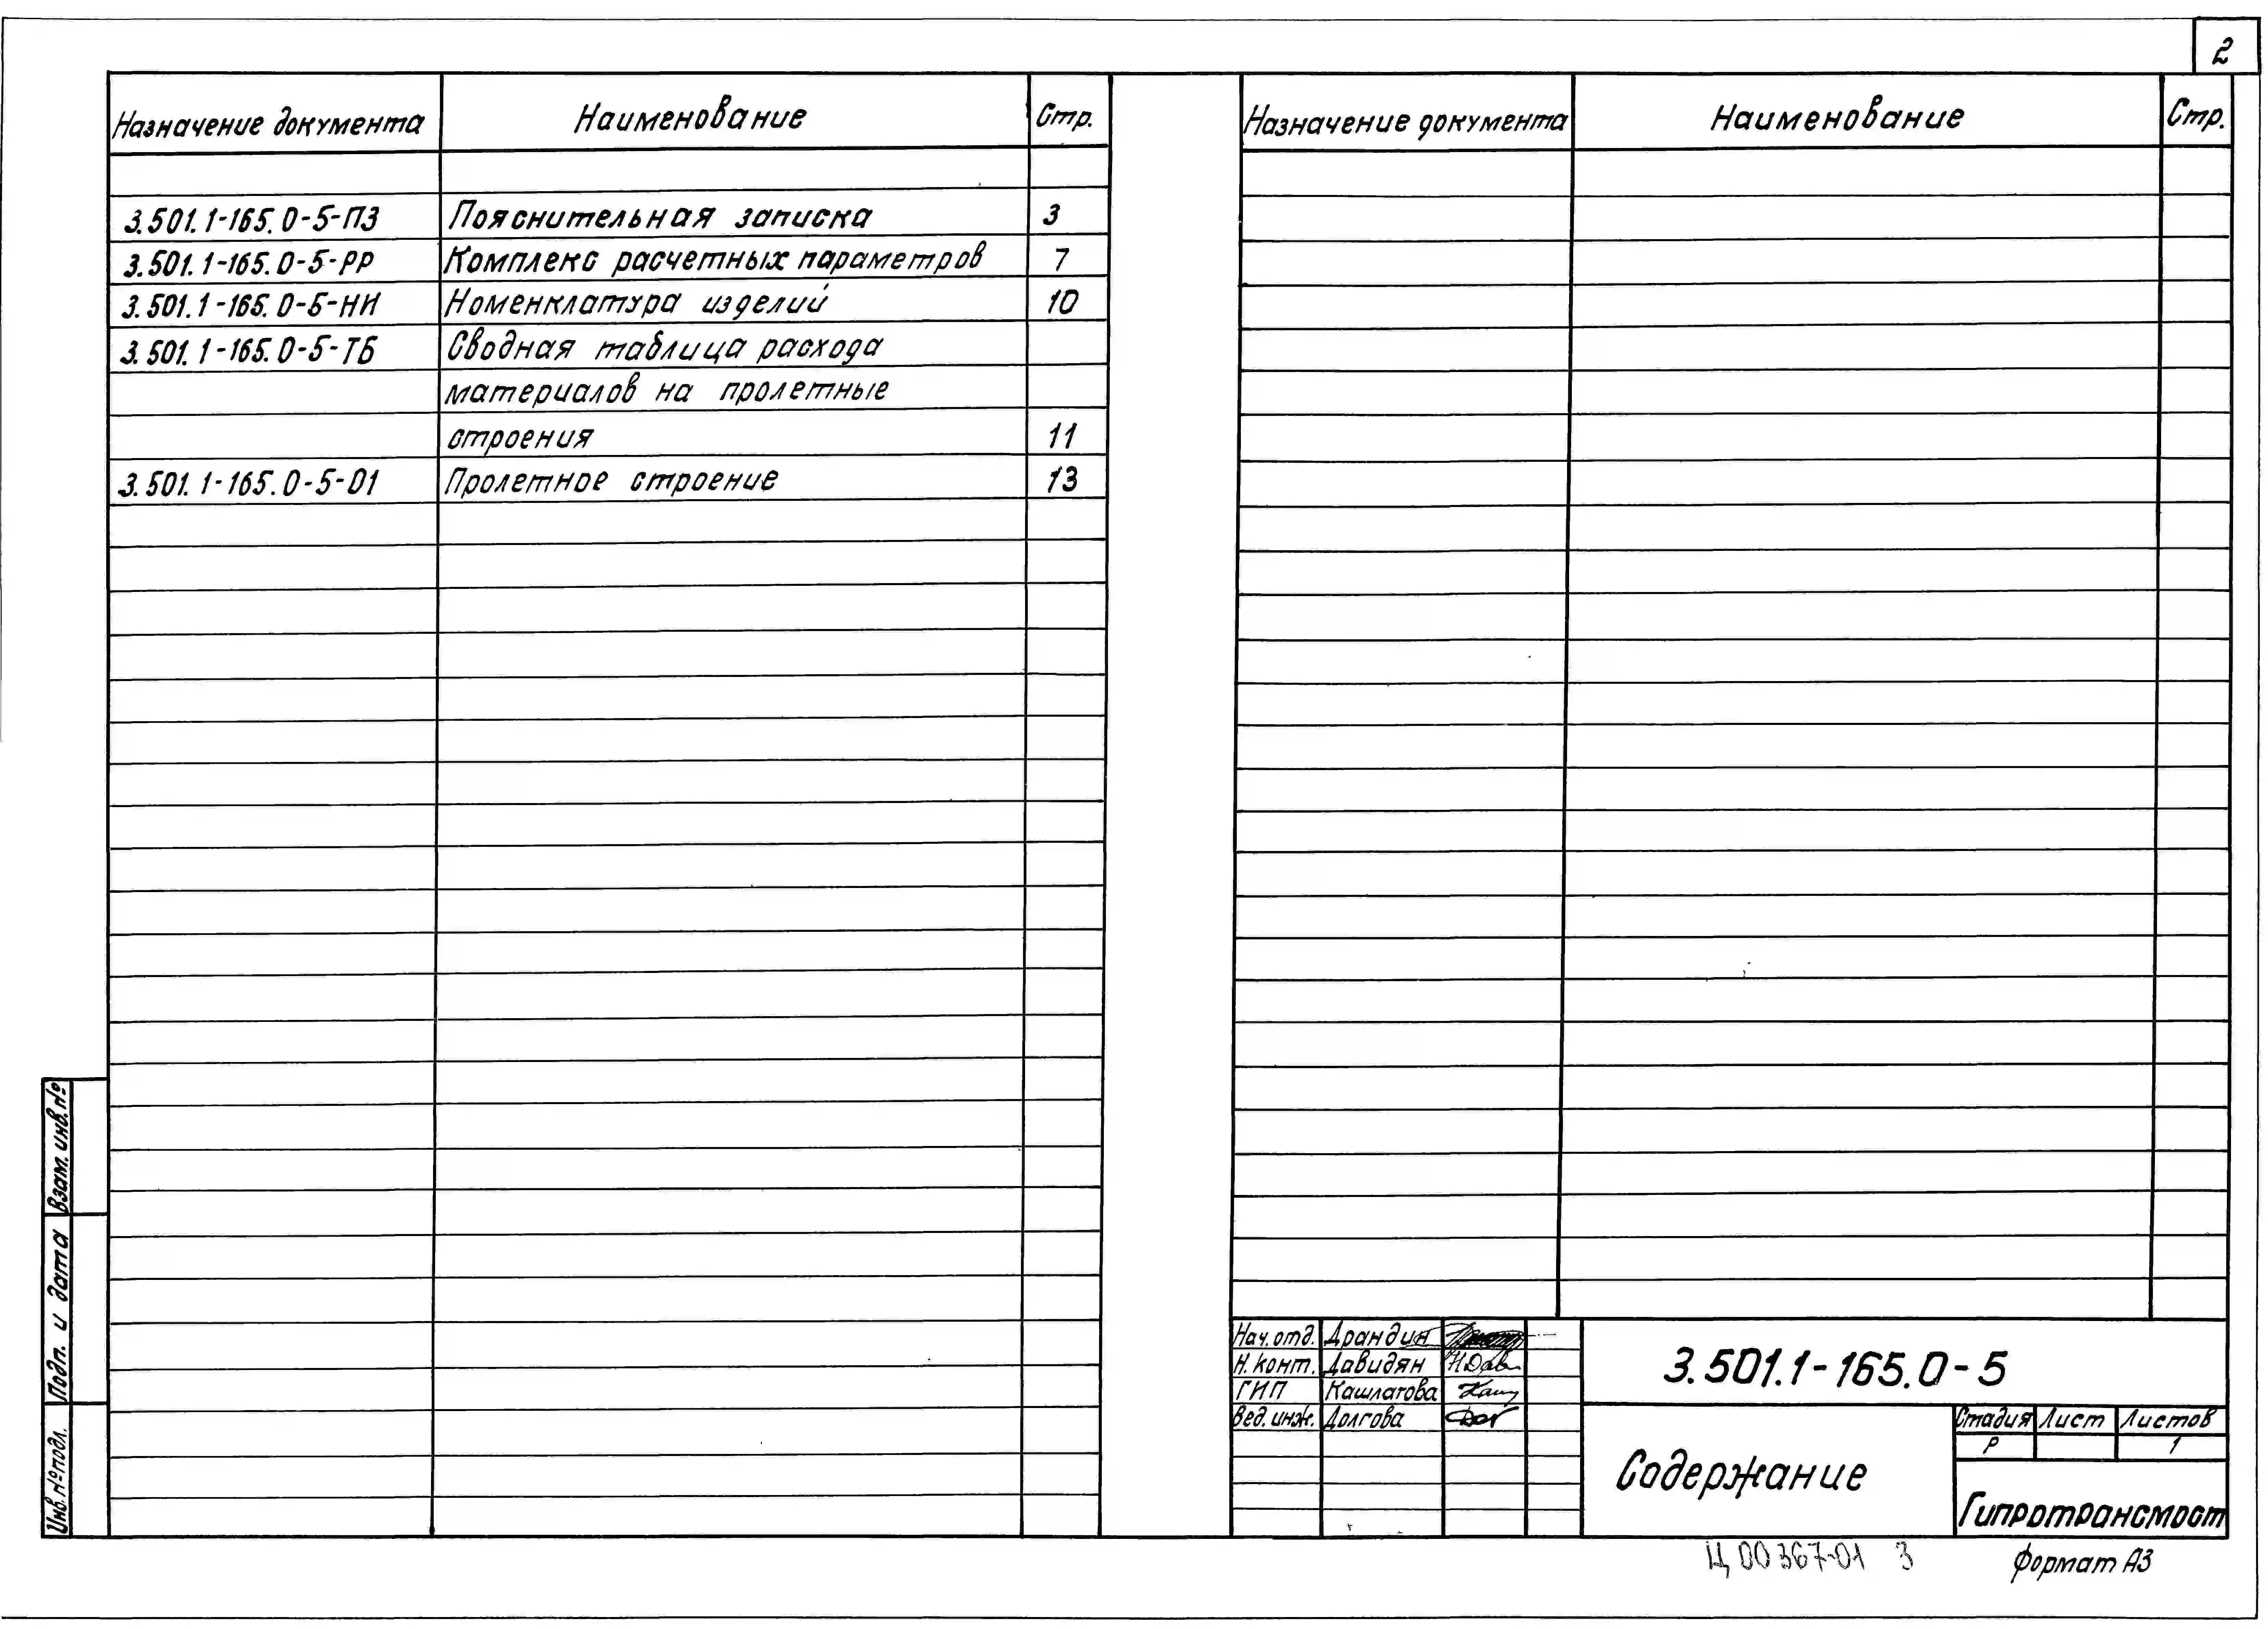 2
Назначение документа Наименование Стр.
3.501.1-165.0-5-ПЗ Пояснительная записка 3
3.501.1-165.0-5-РР Комплекс расчетных параметров 7
3.501.1-165.0-5-НИ Номенклатура изделий 10
3.501.1-165.0-5-ТБ Сводная таблица расхода
материалов на пролетные
строения 11
3.501.1-165.0-5-01 Пролетное строение 13
Назначение документа Наименование Стр.
Взам. инв. №
Подп. и дата
Инв. № подл.
Нач. отд. Драндин
Н. конт. Давидян
ГИП Кашлатова
Вед. инж. Долгова
3.501.1-165.0-5
Содержание
Стадия Лист Листов
Р 1
Гипротрансмост
Ц00367-01 3
формат А3